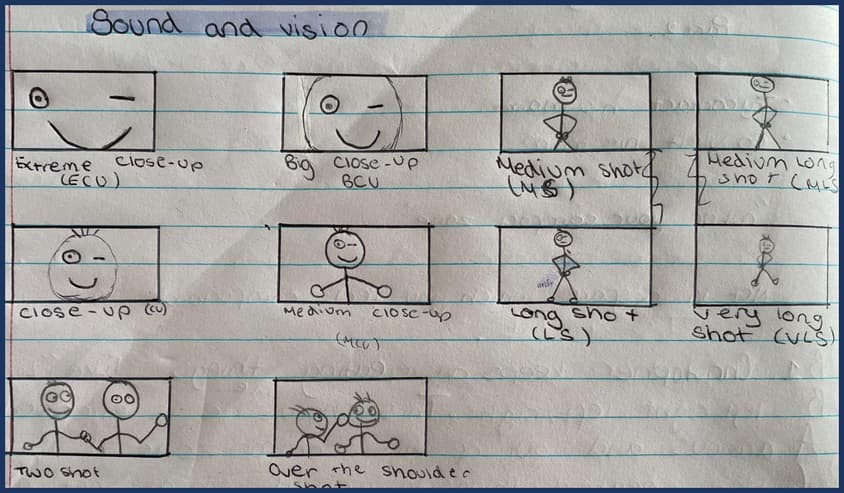 Sound and vision
Extreme close-up
(ECU)
Big close-up
BCU
Medium shot
(MS)
Medium long
shot (MLS
close-up (CU)
Medium close-up
(MCU)
Long shot
(LS)
very long
shot (VLS)
Two shot
Over the shoulder
shot